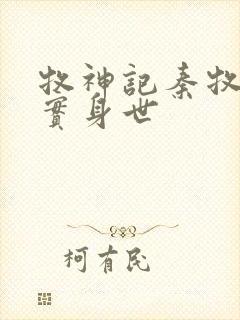 牧神記秦牧
實身世
柯有民